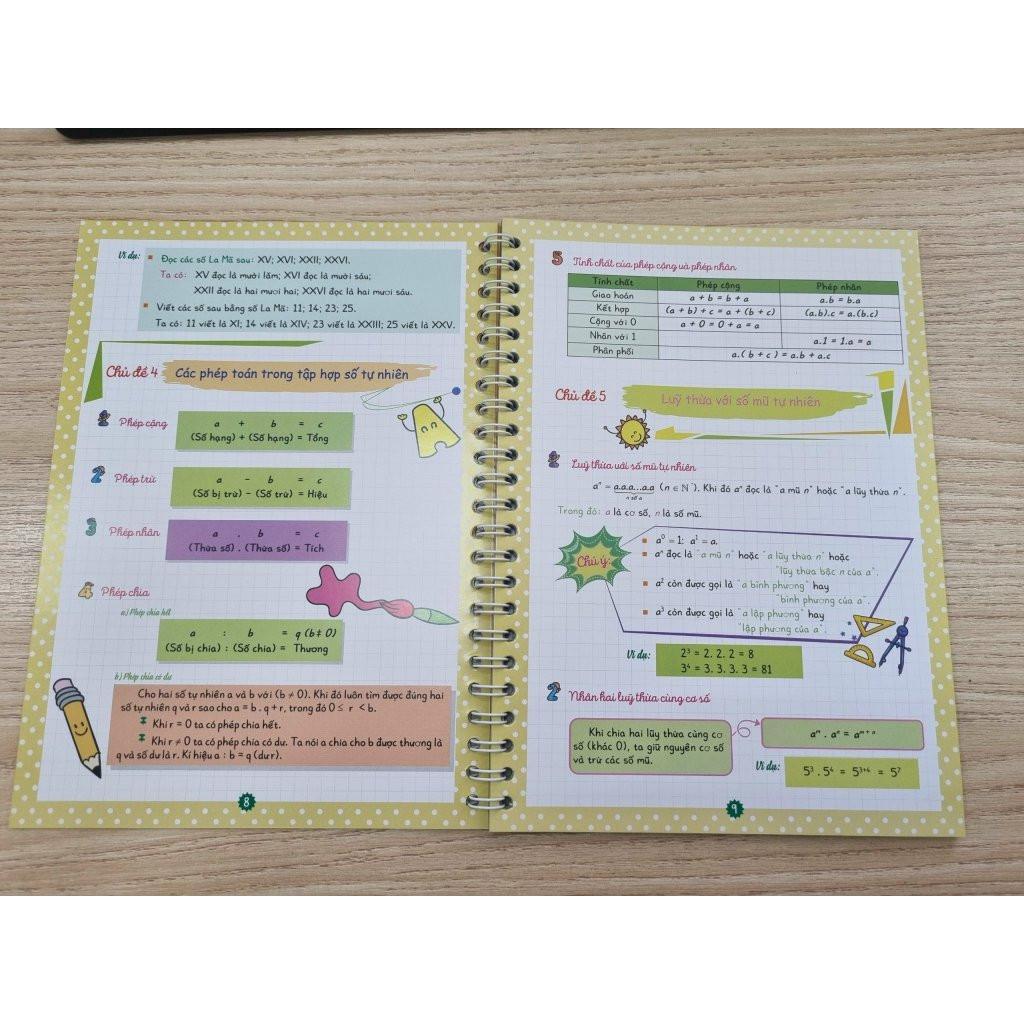 Ví dụ: ▪ Đọc các số La Mã sau: XV; XVI; XXII; XXVI.
Ta có: XV đọc là mười lăm; XVI đọc là mười sáu;
XXII đọc là hai mươi hai; XXVI đọc là hai mươi sáu.
▪ Viết các số sau bằng số La Mã: 11; 14; 23; 25.
Ta có: 11 viết là XI; 14 viết là XIV; 23 viết là XXIII; 25 viết là XXV.
Chủ đề 4 Các phép toán trong tập hợp số tự nhiên
1 Phép cộng
a + b = c
(Số hạng) + (Số hạng) = Tổng
2 Phép trừ
a - b = c
(Số bị trừ) - (Số trừ) = Hiệu
3 Phép nhân
a . b = c
(Thừa số) . (Thừa số) = Tích
4 Phép chia
a) Phép chia hết
a : b = q (b ≠ 0)
(Số bị chia) : (Số chia) = Thương
b) Phép chia có dư
Cho hai số tự nhiên a và b với (b ≠ 0). Khi đó luôn tìm được đúng hai
số tự nhiên q và r sao cho a = b . q + r, trong đó 0 ≤ r < b.
Khi r = 0 ta có phép chia hết.
Khi r ≠ 0 ta có phép chia có dư. Ta nói a chia cho b được thương là
q và số dư là r. Kí hiệu a : b = q (dư r).
8
5 Tính chất của phép cộng và phép nhân
Tính chất Phép cộng Phép nhân
Giao hoán a + b = b + a a.b = b.a
Kết hợp (a + b) + c = a + (b + c) (a.b).c = a.(b.c)
Cộng với 0 a + 0 = 0 + a = a
Nhân với 1 a.1 = 1.a = a
Phân phối a.( b + c ) = a.b + a.c
Chủ đề 5 Luỹ thừa với số mũ tự nhiên
1 Luỹ thừa với số mũ tự nhiên
aⁿ = a.a.a...a.a (n ∈ ℕ*). Khi đó aⁿ đọc là "a mũ n" hoặc "a lũy thừa n".
n số a
Trong đó: a là cơ số, n là số mũ.
Chú ý:
▪ a⁰ = 1; a¹ = a.
▪ aⁿ đọc là "a mũ n" hoặc "a lũy thừa n" hoặc
"lũy thừa bậc n của a".
▪ a² còn được gọi là "a bình phương" hay
"bình phương của a".
▪ a³ còn được gọi là "a lập phương" hay
"lập phương của a".
Ví dụ: 2³ = 2. 2. 2 = 8
3⁴ = 3. 3. 3. 3 = 81
2 Nhân hai luỹ thừa cùng cơ số
Khi chia hai lũy thừa cùng cơ
số (khác 0), ta giữ nguyên cơ số
và trừ các số mũ.
aᵐ . aⁿ = aᵐ⁺ⁿ
Ví dụ: 5³ . 5⁴ = 5³⁺⁴ = 5⁷
9